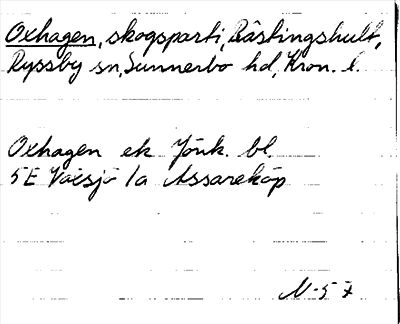 Oxhagen, skogsparti, Råstingshult,
Ryssby sn, Sunnerbo hd, Kron. l.
Oxhagen ek Jönk. bl.
5E Växsjö 1a Assareköp
N-57